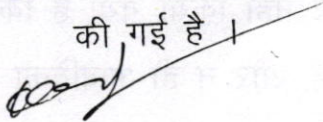 की गई है ।